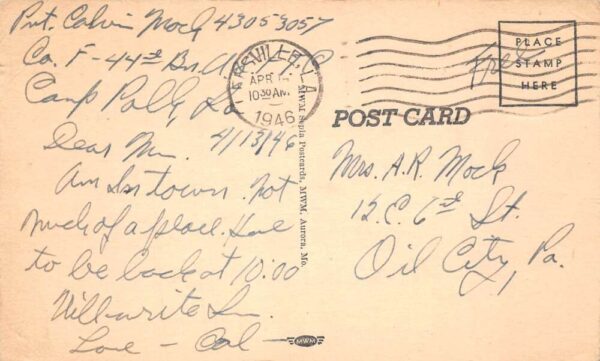 Pvt. Calvin Mock 43053057
Co. F - 44th Bn.
Camp Polk, La
4/13/46
Dear Mm.
Am In town. Not
much of a place. Have
to be back at 10:00
Will write
Love - Cal
LEESVILLE, LA.
APR
10:30 AM
1946
Free
PLACE
STAMP
HERE
POST CARD
Mrs. A.R. Mock
12 C. 6th St.
Oil City, Pa.
MWM Sepia Postcards, MWM, Aurora, Mo.
MWM